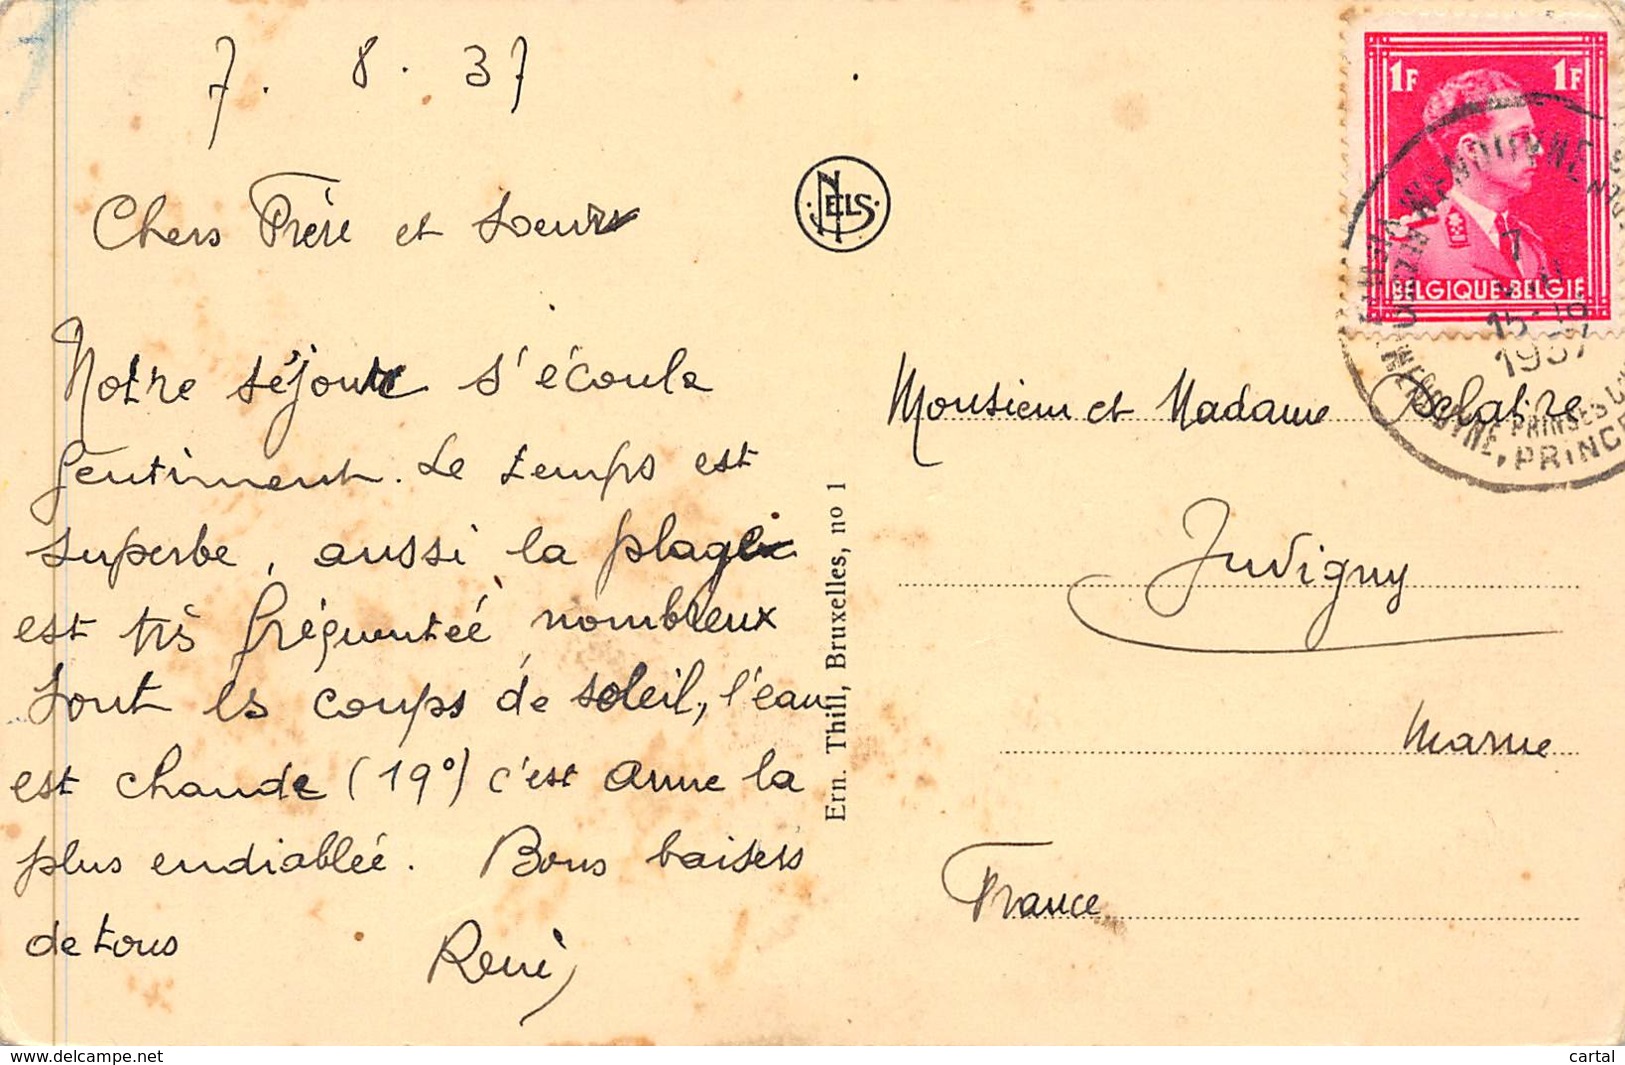 7. 8. 37
Chers Frère et Soeur
Notre séjour s'écoule
gentiment. Le temps est
superbe, aussi la plage
est très fréquentée, nombreux
sont les coups de soleil, l'eau
est chaude (19°) c'est Anne la
plus endiablée. Bons baisers
de tous
René
NELS
Ern. Thill, Bruxelles, no 1
1F 1F
BELGIQUE-BELGIE
WENDUYNE
7
15-
1937
PRINSES
PRINCE
Monsieur et Madame Delatre
Juvigny
Marne
France
www.delcampe.net
cartal